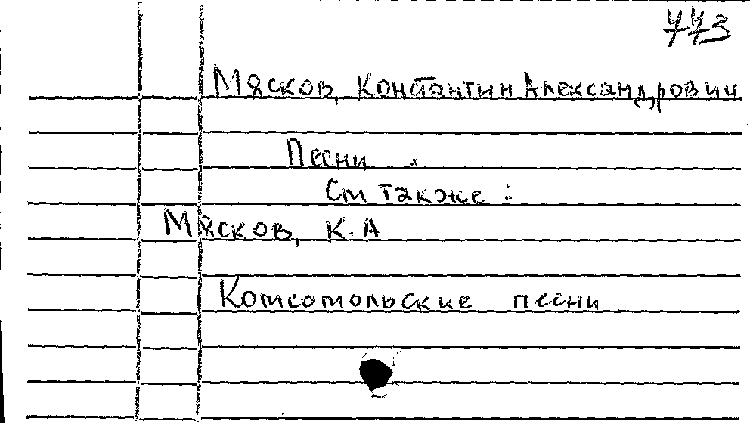 773
Мясков, Константин Александрович
Песни.
См также:
Мясков, К. А
Комсомольские песни